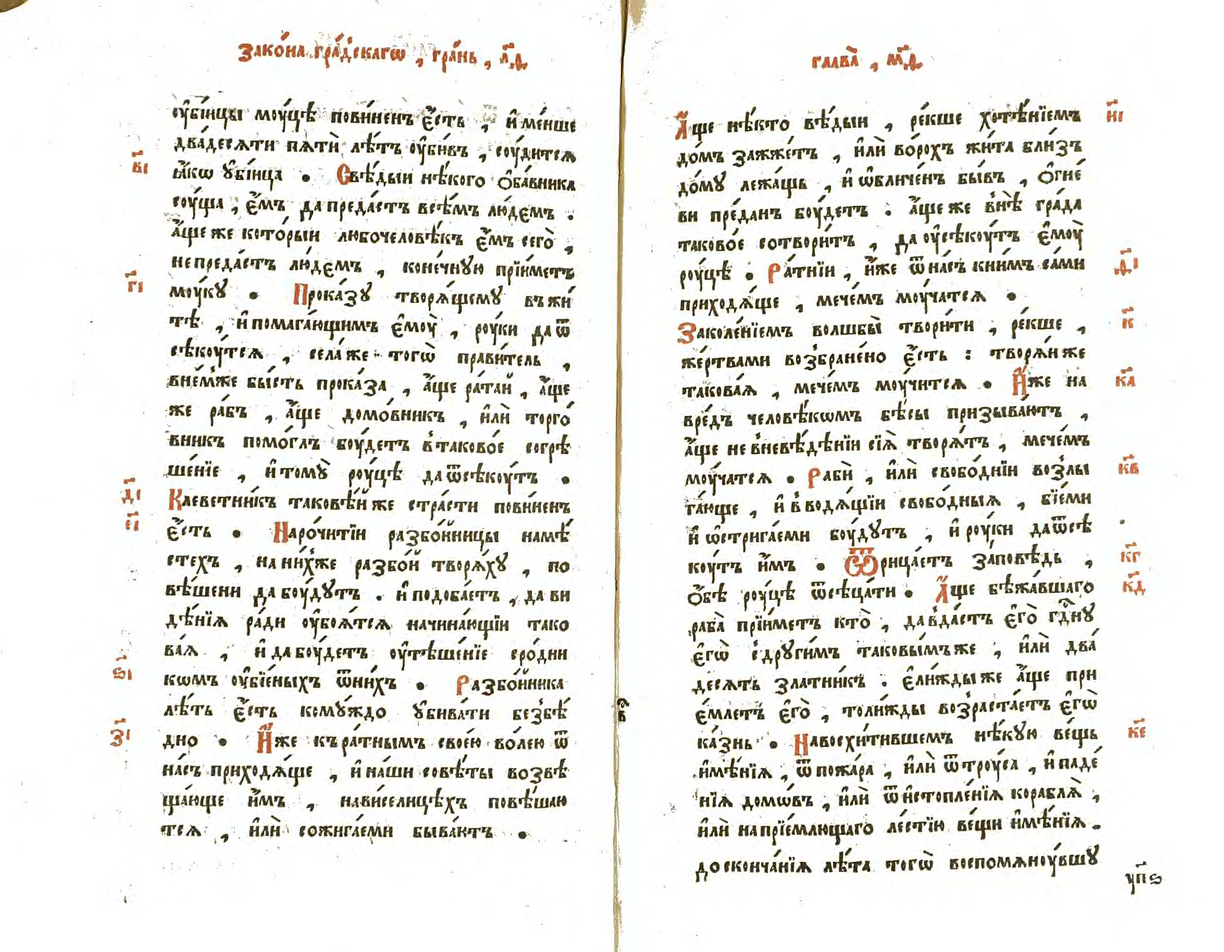 Зако́на гра́дскагѡ , гра́нь , л҃ѳ
оу҆бі́йцы моу́цѣ пови́ненъ є҆́сть , и҆ ме́нше
два́десѧти пѧти́ лѣ́тъ оу҆би́въ , соу́дитсѧ
в҃і
ꙗ҆́кѡ ᲂу҆бі́йца . Свѣ́дыи нѣ́кого ѻ҆ба́вника
соу́ща , є҆́мъ да преда́стъ всѣ́мъ лю́демъ .
а҆́ще же кото́рыи любочеловѣ́къ є҆́мъ сего̀ ,
не преда́стъ лю́демъ , коне́чную прїи́метъ
г҃і
моу́ку . Прока́зу творѧ́щему въ жи́
тѣ , и҆ помага́ющимъ є҆моу̀ , роу́ки да ѿ
сѣкоу́тсѧ , села́ же тогѡ̀ прави́тель ,
внем́же бы́сть прока́за , а҆́ще ра́тай , а҆́ще
же ра́бъ , а҆́ще домо́вникъ , и҆лѝ торго́
вникъ помо́глъ боу́детъ в̾ таково́е согрѣ
ше́нїе , и҆ тому̀ роу́цѣ да ѿсѣкоу́тъ .
д҃і
Клеветни́къ таковѣ́й же стра́сти пови́ненъ
е҃і
є҆́сть . Наро́читїи разбо́йницы намѣ́
стехъ , на ни́хже разбо́й творѧ́ху , по
вѣ́шени да боу́дутъ . и҆ подоба́етъ , да ви́
дѣ́нїѧ ра́ди оу҆боѧ́тсѧ начина́ющїи тако
ва́ѧ , и҆ да боу́детъ оу҆тѣше́нїе сро́дни
ѕ҃і
кѡмъ оу҆бїе́ныхъ ѿ ни́хъ . Разбо́йника
лѣ́ть є҆́сть кому́ждо ᲂу҆бива́ти безбѣ́
з҃і
дно . И҆́же къ ра́тнымъ свое́ю во́лею ѿ
на́съ приходѧ́ще , и҆ на́ши совѣ́ты возвѣ
ща́юще и҆̀мъ , на ви́селицѣхъ повѣша́ю
тсѧ , и҆лѝ сожига́еми быва́ютъ .
глава̀ , м҃ѳ
и҃і
А҆́ще нѣ́кто вѣ́дыи , ре́кше хотѣ́нїемъ
до́мъ зажже́тъ , и҆лѝ во́рохъ жи́та бли́зъ
до́му лежа́щь , и҆ ѡ҆бличе́нъ бы́въ , ѻ҆гне́
ви пре́данъ боу́детъ . а҆́ще же внѣ̀ гра́да
таково́е сотвори́тъ , да оу҆сѣкоу́тъ є҆моу̀
ѳ҃і
роу́цѣ . Ра́тнїи , и҆́же ѿ на́съ к ни́мъ са́ми
приходѧ́ще , мече́мъ моу́чатсѧ .
к҃
Заколе́нїемъ волшбы̀ твори́ти , ре́кше ,
же́ртвами возбране́но є҆́сть : творѧ́й же
к҃а
такова́ѧ , мече́мъ моу́читсѧ . И҆́же на
вре́дъ человѣ́кѡмъ бѣ́сы призыва́ютъ ,
а҆́ще не в̾ невѣ́дѣнїи сїѧ̀ творѧ́тъ , мече́мъ
к҃в
моу́чатсѧ . Рабѝ , и҆лѝ свобо́днїи возлы
га́юще , и҆ вводѧ́щїи свобо́дныѧ , бїе́ми
и҆ ѡ҆стрига́еми боу́дутъ , и҆ роу́ки да ѿсѣ
к҃г
коу́тъ и҆̀мъ . Ѿрица́етъ за́повѣдь ,
к҃д
ѻ҆́бѣ роу́цѣ ѿсѣца́ти . А҆́ще бѣжа́вшаго
раба̀ прїи́метъ кто̀ , да в̾да́стъ є҆го̀ гд҇ну
є҆гѡ̀ с други́мъ таковы́мъ же , и҆лѝ два́
десѧть злат́никъ . є҆ли́жды же а҆́ще прї
е́млетъ є҆го̀ , толи́жды возраста́етъ є҆гѡ̀
к҃е
ка́знь . На восхити́вшемъ нѣ́кую ве́щь
и҆мѣ́нїѧ , ѿ пожа́ра , и҆лѝ ѿ троу́са , и҆ паде́
нїѧ домо́въ , и҆лѝ ѿ и҆стопле́нїѧ кораблѧ̀ ,
и҆лѝ на прїе́млющаго ле́стїю ве́щи и҆мѣ́нїѧ .
до сконча́нїѧ лѣ́та тогѡ̀ воспомѧноу́вшу
уп҃ѕ